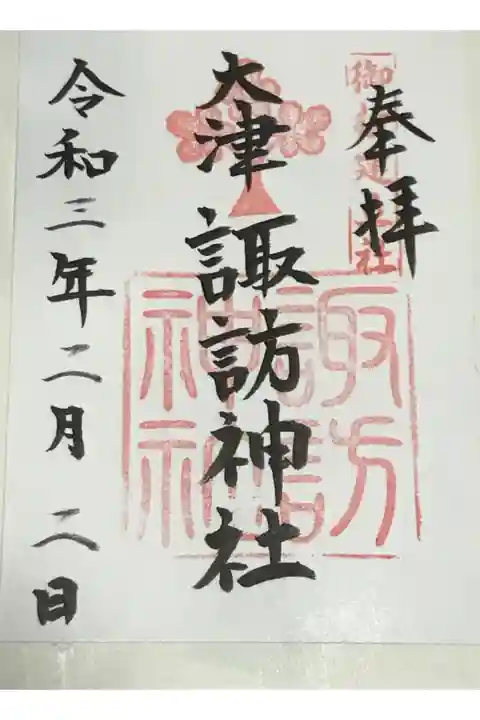 奉拝
大津 諏訪神社
諏訪神社
令和三年二月 二日